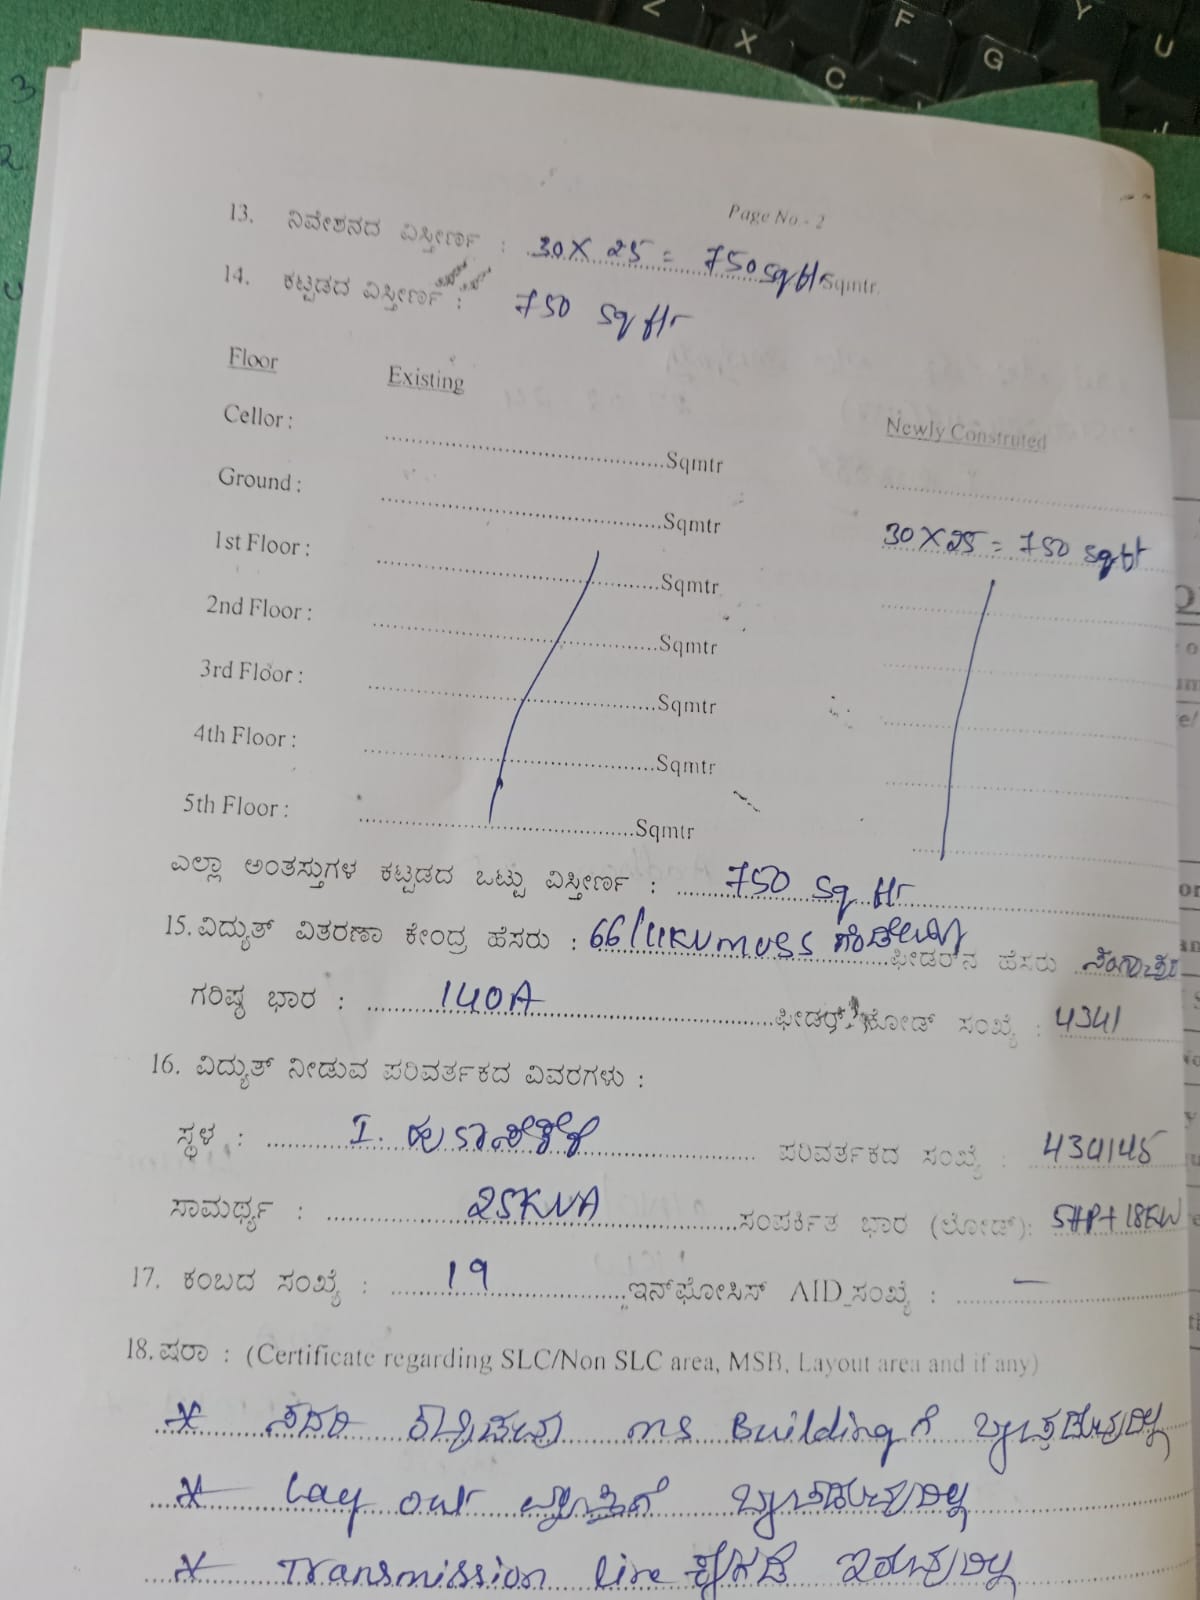 Page No.- 2
13. ನಿವೇಶನದ ವಿಸ್ತೀರ್ಣ : 30 X 25 = 750 Sq ftr Sqmtr.
14. ಕಟ್ಟಡದ ವಿಸ್ತೀರ್ಣ : 750 Sq ftr
Floor Existing Newly Constructed
Cellor : Sqmtr
Ground : Sqmtr 30 X 25 = 750 Sqft
1st Floor : Sqmtr
2nd Floor : Sqmtr
3rd Floor : Sqmtr
4th Floor : Sqmtr
5th Floor : Sqmtr
ಎಲ್ಲಾ ಅಂತಸ್ತುಗಳ ಕಟ್ಟಡದ ಒಟ್ಟು ವಿಸ್ತೀರ್ಣ : 750 Sq ftr
15. ವಿದ್ಯುತ್ ವಿತರಣಾ ಕೇಂದ್ರ ಹೆಸರು : 66/11KV MUSS ಫೀಡರ್‌ನ ಹೆಸರು
ಗರಿಷ್ಠ ಭಾರ : 140A ಫೀಡರ್ ಕೋಡ್ ಸಂಖ್ಯೆ : 4341
16. ವಿದ್ಯುತ್ ನೀಡುವ ಪರಿವರ್ತಕದ ವಿವರಗಳು :
ಸ್ಥಳ : I. ಪರಿವರ್ತಕದ ಸಂಖ್ಯೆ :
ಸಾಮರ್ಥ್ಯ : 25KVA ಸಂಪರ್ಕಿತ ಭಾರ (ಲೋಡ್): 5HP+18KW
17. ಕಂಬದ ಸಂಖ್ಯೆ : 19 ಇನ್‌ಫೋಸಿಸ್ AID ಸಂಖ್ಯೆ : —
18. ಷರಾ : (Certificate regarding SLC/Non SLC area, MSB, Layout area and if any)
* ಸದರಿ ಕಟ್ಟಡವು MS Building ಗೆ
* Lay out
* Transmission line ಕೆಳಗಡೆ ಇರುವುದಿಲ್ಲ